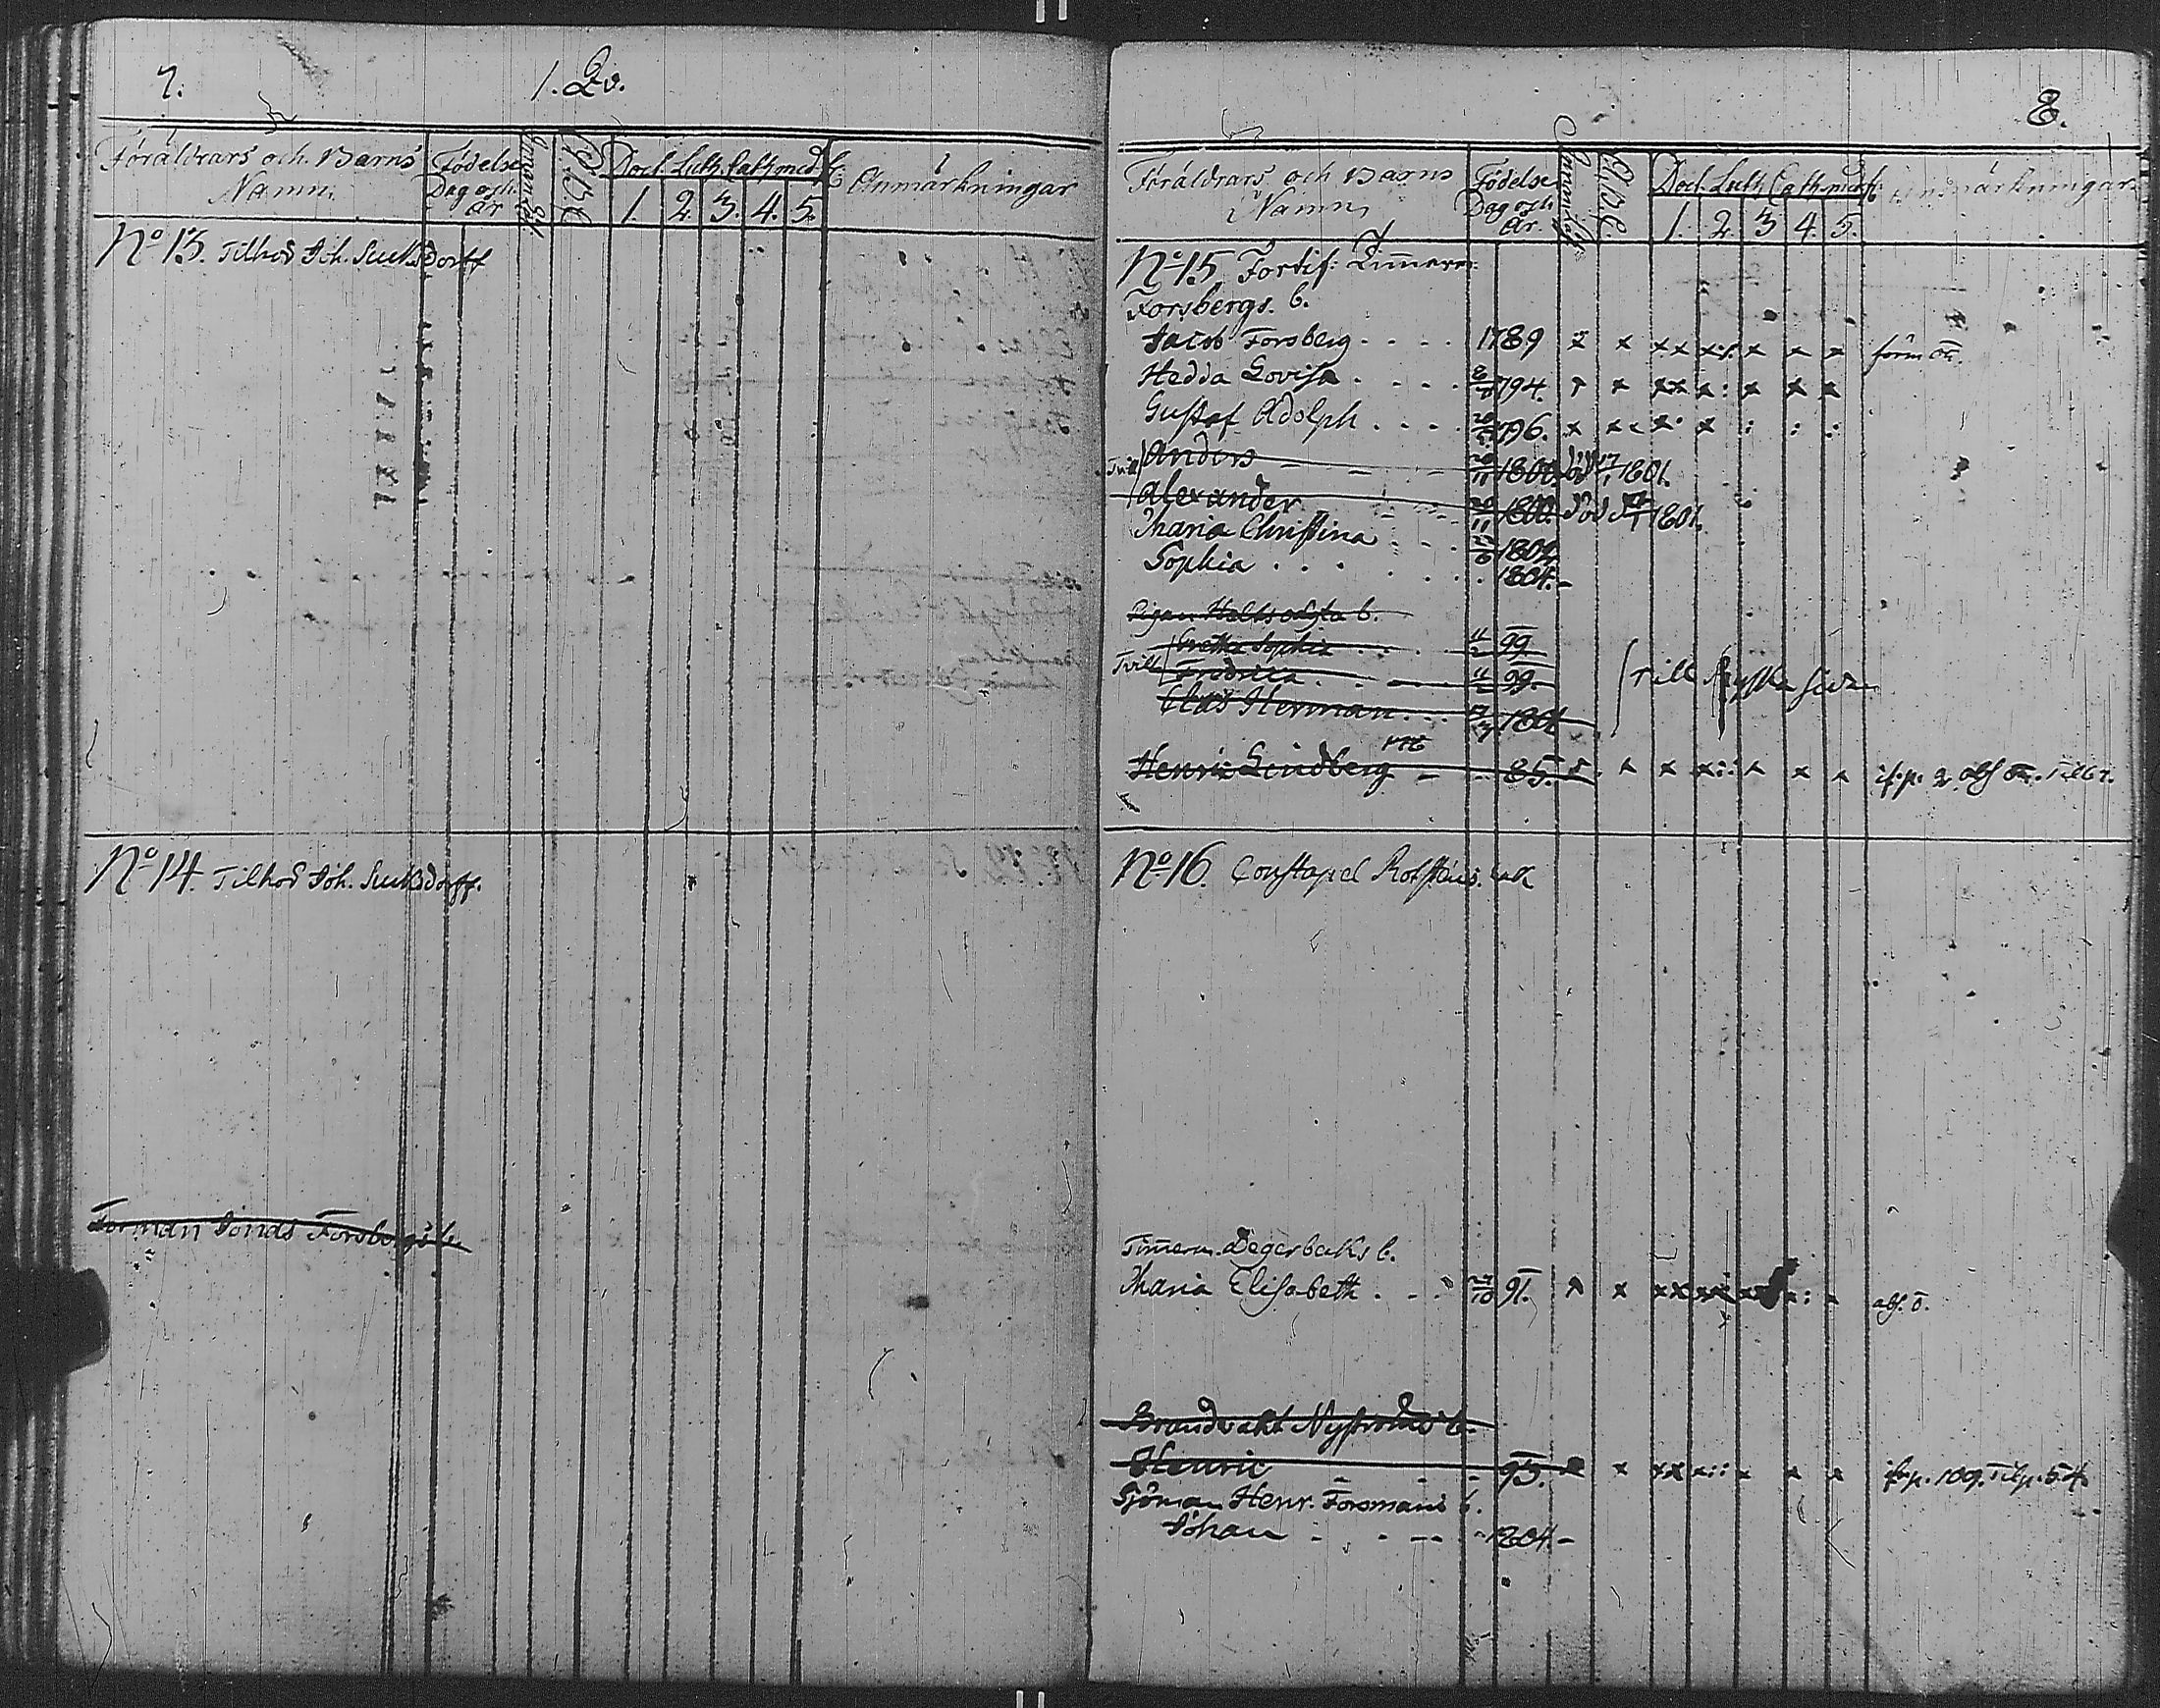 7.
1. Qv.
Föräldrars och Barns
Namn.
Födelse
Dag och
år
A.B.C.
Doct. Luth. Cath. med f:
1. 2. 3. 4. 5.
Anmärkningar
No 13. Tilhör Joh. Sucksdorff
No 14. Tilhör Joh. Sucksdorff.
Forman Jonas Forsbergs b.
8.
Föräldrars och Barns
Namn
Födelse
Dag och
år
A.B.C.
Doct. Luth. Cath. med f:
1. 2. 3. 4. 5.
Anmärkningar
No 15 Fortif: Timmerm:
Forsbergs. b.
Jacob Forsberg . . . . 1789 x x xx x x x
Hedda Lovisa . . . . 1794. x xx x: x x x
Gustaf Adolph . . . . 1796. x x x : : :
Tvill Anders 20/11 1800. död 1801.
Alexander 20/11 1800. död 1801.
Maria Christina
Sophia . . . . . . 1804.
Pigan b.
Gretha Sophia 11/2 99
Tvill Fredrica . . 11/2 99.
Claes Herman . . . 1801
Till Ryska sida
Henric Lindberg 85. x x x:: x x x
No 16. Constapel Rotstens
Timerm. Degerbaks b.
Maria Elisabeth . . . 91. x
abs. o.
Brandvakt Nyströms b.
Henric 95. x xx x:: x x x p. 109. Til p. 54.
Sjöman Henr. Forsmans b.
Johan 1804.